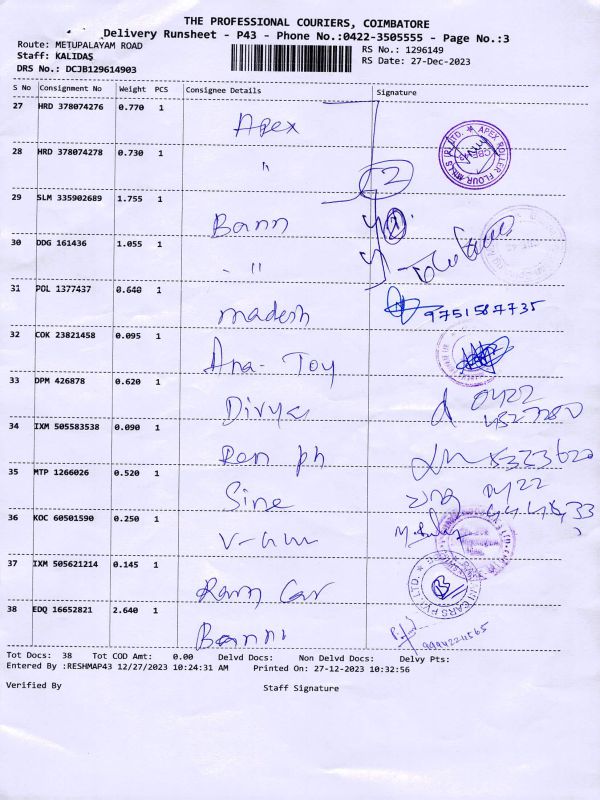 THE PROFESSIONAL COURIERS, COIMBATORE
Delivery Runsheet - P43 - Phone No.:0422-3505555 - Page No.:3
Route: METUPALAYAM ROAD
Staff: KALIDAS
DRS No.: DCJB129614903
RS No.: 1296149
RS Date: 27-Dec-2023
S No Consignment No Weight PCS Consignee Details Signature
27 HRD 378074276 0.770 1 Apex
APEX ROLLER FLOUR MILLS (P) LTD.
28 HRD 378074278 0.730 1 " 2
29 SLM 335902689 1.755 1 Bann
30 DDG 161436 1.055 1 - "
31 POL 1377437 0.640 1 madesh 9751587735
32 COK 23821458 0.095 1 Ana- Toy
33 DPM 426878 0.620 1 Divya 0422
34 IXM 505583538 0.090 1 Ram ph
35 MTP 1266026 0.520 1 Sine
36 KOC 60501590 0.250 1
37 IXM 505621214 0.145 1 Ram Car
38 EDQ 16652821 2.640 1 Bann
Tot Docs: 38 Tot COD Amt: 0.00 Delvd Docs: Non Delvd Docs: Delvy Pts:
Entered By :RESHMAP43 12/27/2023 10:24:31 AM Printed On: 27-12-2023 10:32:56
Verified By Staff Signature